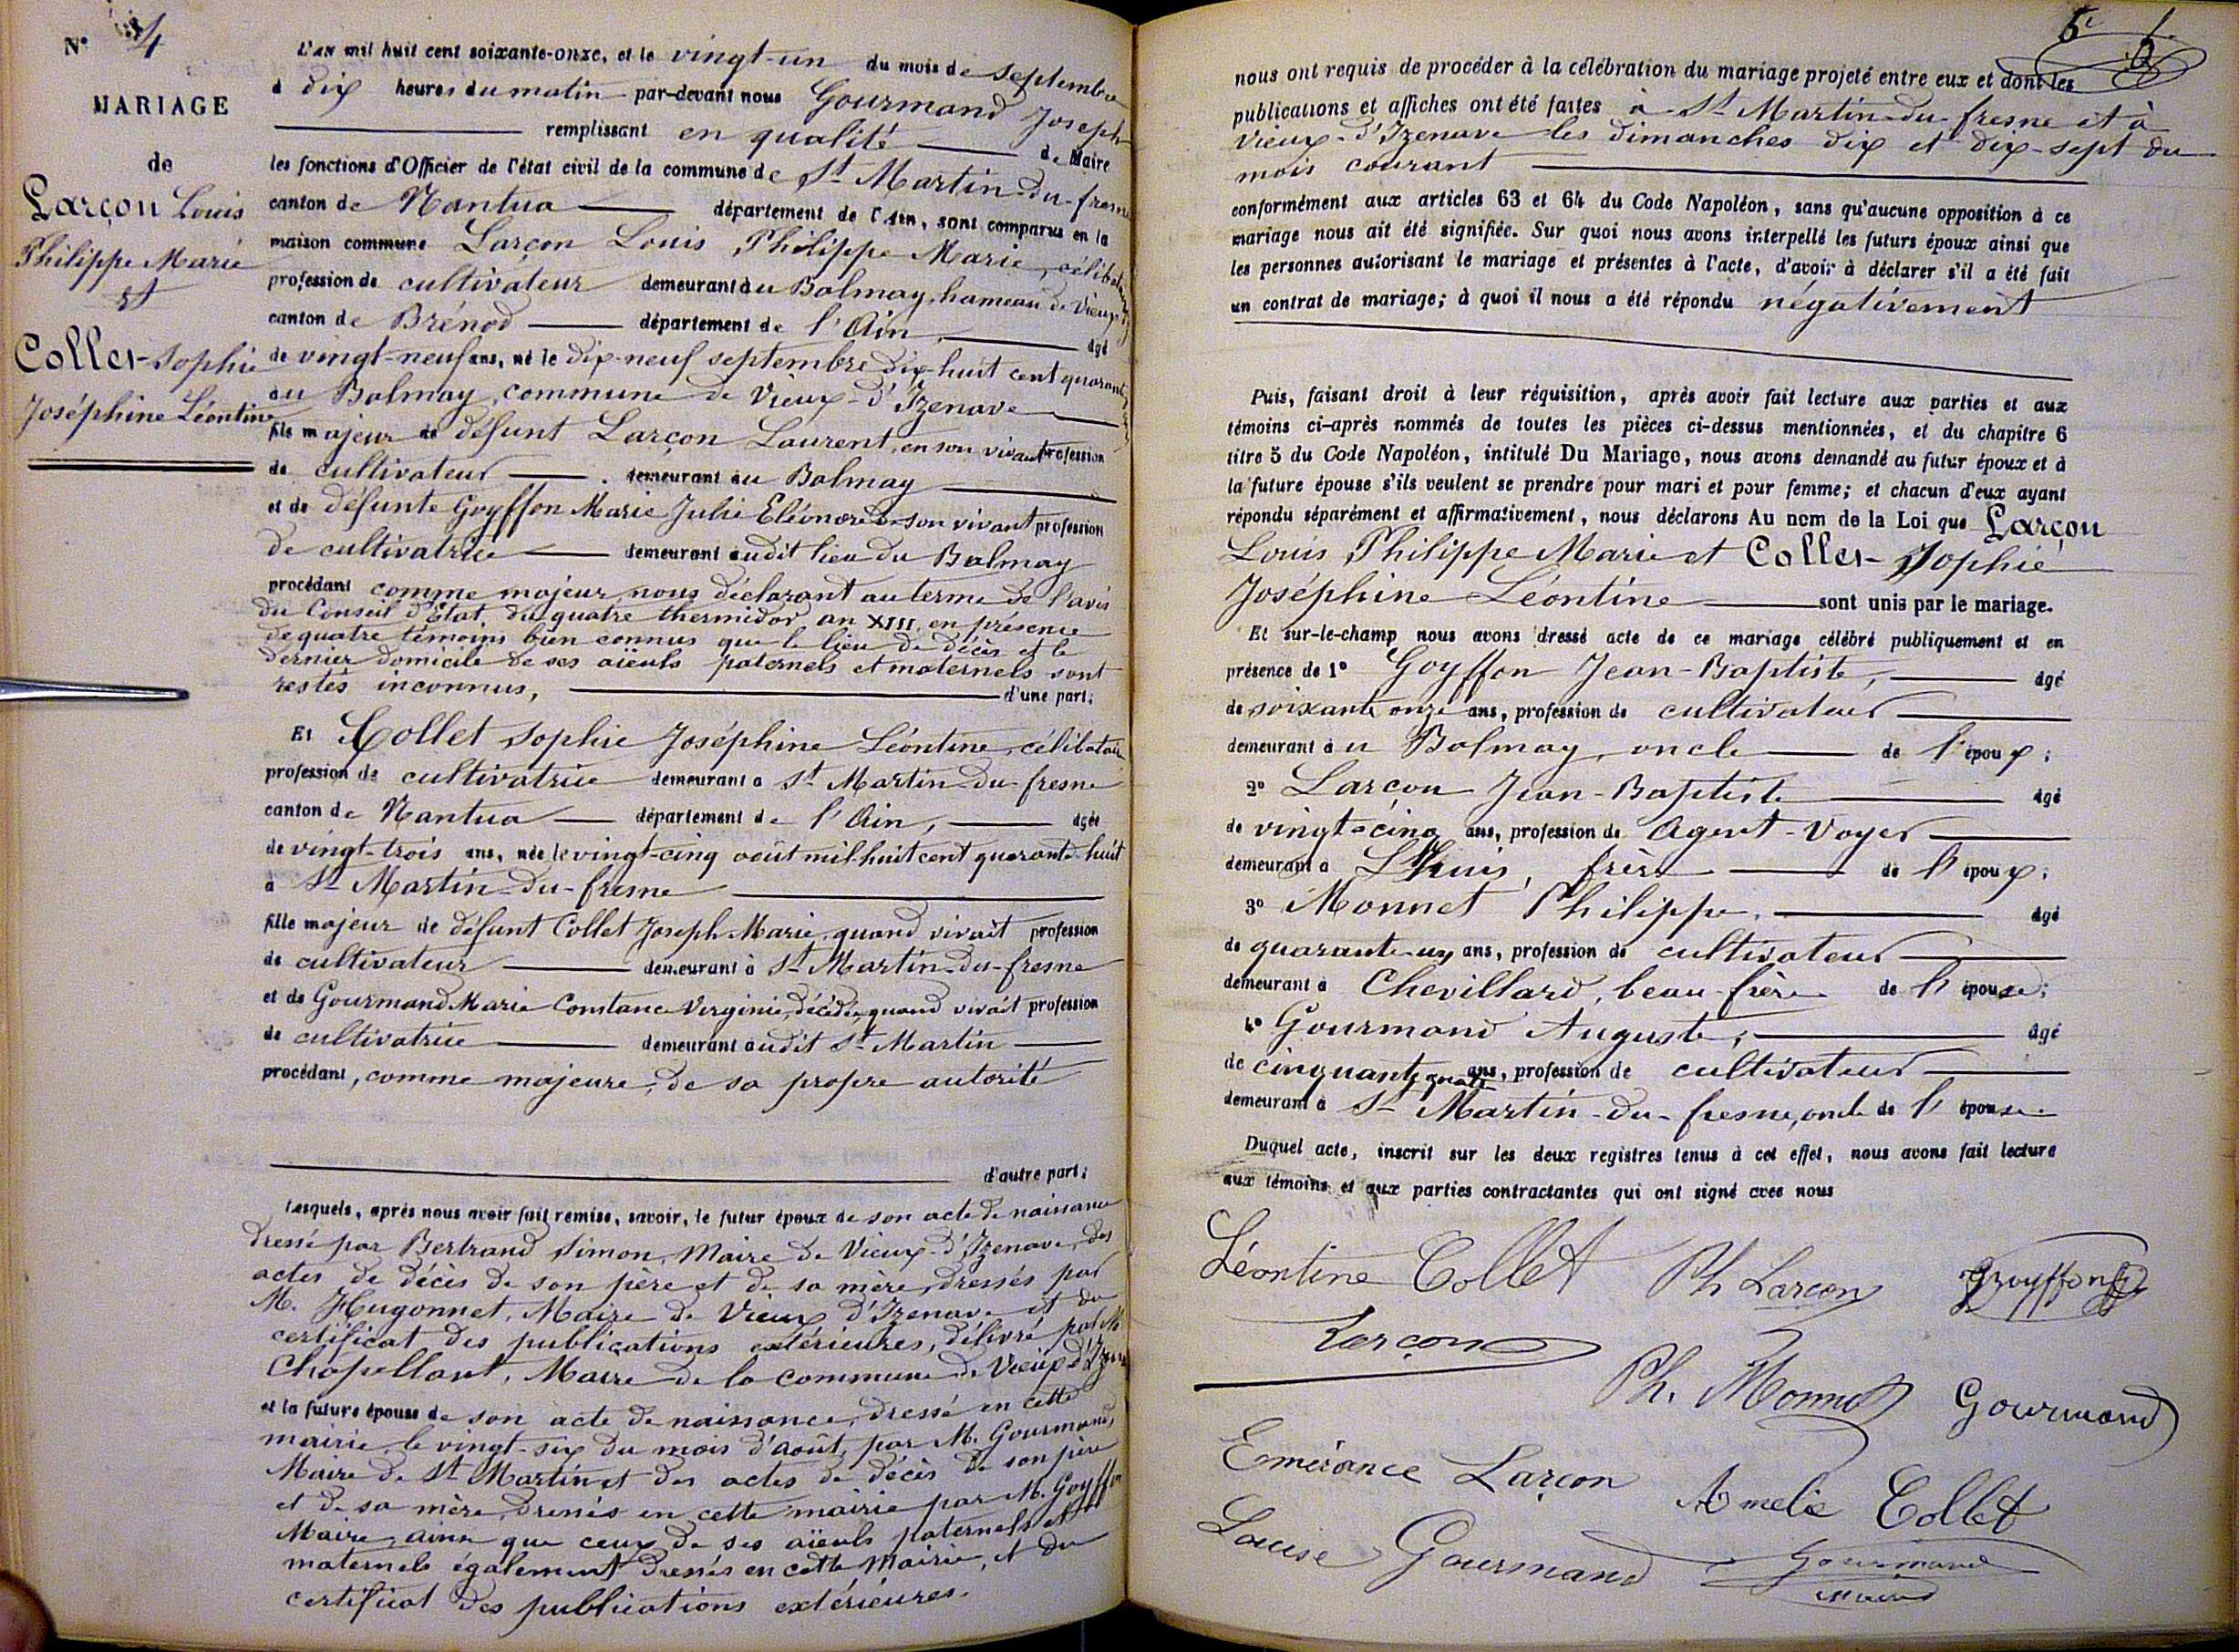 N° 4
MARIAGE
de
Larçon Louis
Philippe Marie
et
Collet Sophie
Joséphine Léontine
L'an mil huit cent soixante-onze, et le vingt-un du mois de septembre
à dix heures du matin par-devant nous Gourmand Joseph
remplissant en qualité de Maire
les fonctions d'Officier de l'état civil de la commune de St Martin-du-fresne
canton de Nantua département de l'Ain, sont comparus en la
maison commune Larçon Louis Philippe Marie, célibataire
profession de cultivateur demeurant au Balmay, hameau de Vieux
canton de Brénod département de l'Ain, âgé
de vingt-neuf ans, né le dix-neuf septembre dix-huit cent quarante
au Balmay, commune de Vieux-d'Izenave
fils majeur de défunt Larçon Laurent, en son vivant profession
de cultivateur demeurant au Balmay
et de défunte Goyffon Marie Julie Eléonore en son vivant profession
de cultivatrice demeurant audit lieu du Balmay
procédant comme majeur, nous déclarant au terme de l'avis
du Conseil d'Etat, du quatre thermidor, an XIII, en présence
de quatre témoins bien connus que le lieu de décès et le
dernier domicile de ses aïeuls paternels et maternels sont
restés inconnus, d'une part;
Et Collet Sophie Joséphine Léontine, célibataire
profession de cultivatrice demeurant à St Martin-du-fresne
canton de Nantua département de l'Ain, âgée
de vingt-trois ans, née le vingt-cinq août mil huit cent quarante-huit
à St Martin-du-fresne
fille majeur de défunt Collet Joseph Marie, quand vivait profession
de cultivateur demeurant à St Martin-du-fresne
et de Gourmand Marie Constance Virginie, décédée, quand vivait profession
de cultivatrice demeurant audit St Martin
procédant, comme majeure, de sa propre autorité
d'autre part;
Lesquels, après nous avoir fait remise, savoir, le futur époux de son acte de naissance
dressé par Bertrand Simon, Maire de Vieux-d'Izenave, des
actes de décès de son père et de sa mère, dressés par
M. Hugonnet, Maire de Vieux d'Izenave et du
certificat des publications extérieures, délivré par M.
Chapellant, Maire de la commune de Vieux d'Izenave
et la future épouse de son acte de naissance, dressé en cette
mairie, le vingt-six du mois d'août, par M. Gourmand,
Maire de St Martin et des actes de décès de son père
et de sa mère, dressés en cette mairie par M. Goyffon
Maire, ainsi que ceux de ses aïeuls paternels et
maternels également dressés en cette Mairie, et du
certificat des publications extérieures.
nous ont requis de procéder à la célébration du mariage projeté entre eux et dont les
publications et affiches ont été faites à St Martin-du-fresne et à
Vieux-d'Izenave les dimanches dix et dix-sept du
mois courant
conformément aux articles 63 et 64 du Code Napoléon, sans qu'aucune opposition à ce
mariage nous ait été signifiée. Sur quoi nous avons interpellé les futurs époux ainsi que
les personnes autorisant le mariage et présentes à l'acte, d'avoir à déclarer s'il a été fait
un contrat de mariage; à quoi il nous a été répondu négativement
Puis, faisant droit à leur réquisition, après avoir fait lecture aux parties et aux
témoins ci-après nommés de toutes les pièces ci-dessus mentionnées, et du chapitre 6
titre 5 du Code Napoléon, intitulé Du Mariage, nous avons demandé au futur époux et à
la future épouse s'ils veulent se prendre pour mari et pour femme; et chacun d'eux ayant
répondu séparément et affirmativement, nous déclarons Au nom de la Loi que Larçon
Louis Philippe Marie et Collet Sophie
Joséphine Léontine sont unis par le mariage.
Et sur-le-champ nous avons dressé acte de ce mariage célébré publiquement et en
présence de 1° Goyffon Jean-Baptiste, âgé
de soixante onze ans, profession de cultivateur
demeurant au Balmay, oncle de l'époux;
2° Larçon Jean-Baptiste âgé
de vingt-cinq ans, profession de Agent-Voyer
demeurant à Lhuis, frère de l'époux;
3° Monnet Philippe, âgé
de quarante-un ans, profession de cultivateur
demeurant à Chevillard, beau-frère de l'épouse;
4° Gourmand Auguste, âgé
de cinquante quatre ans, profession de cultivateur
demeurant à St Martin-du-fresne, oncle de l'épouse.
Duquel acte, inscrit sur les deux registres tenus à cet effet, nous avons fait lecture
aux témoins et aux parties contractantes qui ont signé avec nous
Léontine Collet Ph Larçon Goyffon
Larçon
Ph. Monnet Gourmand
Emérance Larçon Amelie Collet
Louise Gourmand Gourmand
maire